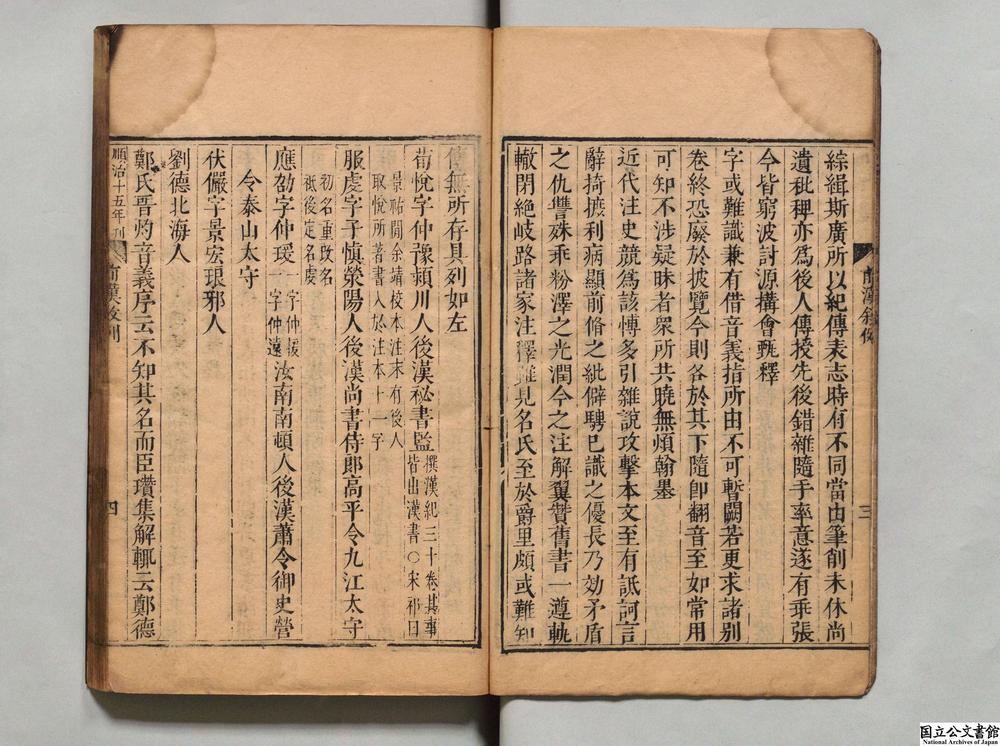 綜緝斯廣所以紀傳表志時有不同當由筆削未休尚
遺秕稗亦爲後人傳授先後錯雜隨手率意遂有乖張
今皆窮波討源搆會甄釋
字或難識兼有借音義指所由不可暫闕若更求諸別
卷終恐廢於披覽今則各於其下隨卽翻音至如常用
可知不涉疑昧者衆所共曉無煩翰墨
近代注史競爲該博多引雜說攻擊本文至有詆訶言
辭掎摭利病顯前脩之紕僻騁已識之優長乃効矛盾
之仇讐殊乖粉澤之光潤今之注解翼贊舊書一遵軌
轍閉絶岐路諸家注釋雖見名氏至於爵里頗或難知
三
傳無所存具列如左
荀悅字仲豫潁川人後漢秘書監撰漢紀三十卷其事
皆出漢書〇宋祁曰
景祐間余靖校本注末有後人
取悅所著書入於注本十一字
服虔字子愼滎陽人後漢尚書侍郎高平令九江太守
初名重改名
祇後定名虔
應劭字仲瑗一字仲援
一字仲遠汝南南頓人後漢蕭令御史營
令泰山太守
伏儼字景宏琅邪人
劉德北海人
鄭氏晋灼音義序云不知其名而臣瓚集解輒云鄭德
順治十五年刊
四
国立公文書館
National Archives of Japan